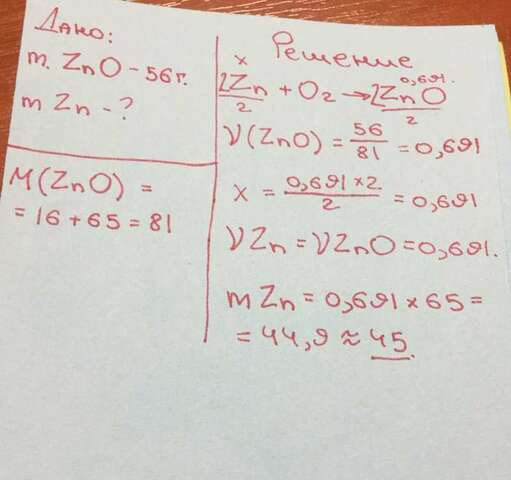 Дано:
m. ZnO - 56 г.
m Zn - ?
M(ZnO) =
= 16 + 65 = 81
Решение
x 0,691.
2Zn + O2 → 2ZnO
2 2
ν(ZnO) = 56/81 = 0,691
x = 0,691 × 2/2 = 0,691
νZn = νZnO = 0,691.
mZn = 0,691 × 65 =
= 44,9 ≈ 45.